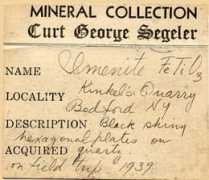 MINERAL COLLECTION
Curt George Segeler
NAME Ilmenite FeTiO3
LOCALITY Kinkel's Quarry
Bedford NY
DESCRIPTION Black shiny
hexagonal plates on
ACQUIRED quartz
on field trip, 1939.